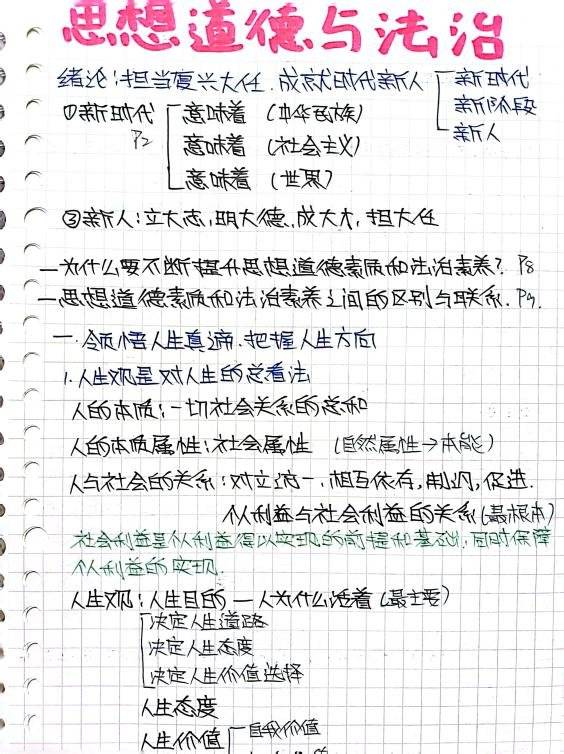 思想道德与法治
绪论:担当复兴大任.成就时代新人 新时代
新阶段
新人
①新时代 意味着 (中华民族)
P2 意味着 (社会主义)
意味着 (世界)
③新人:立大志,明大德,成大才,担大任
一为什么要不断提升思想道德素质和法治素养? P8
一思想道德素质和法治素养之间的区别与联系. P9.
一.领悟人生真谛.把握人生方向
1.人生观是对人生的总看法
人的本质:一切社会关系的总和
人的本质属性:社会属性 (自然属性→本能)
人与社会的关系:对立统一,相互依存,制约,促进.
个人利益与社会利益的关系(最根本)
社会利益是个人利益得以实现的前提和基础,同时保障
个人利益的实现.
人生观:人生目的 — 人为什么活着(最主要)
决定人生道路
决定人生态度
决定人生价值选择
人生态度
人生价值 自我价值